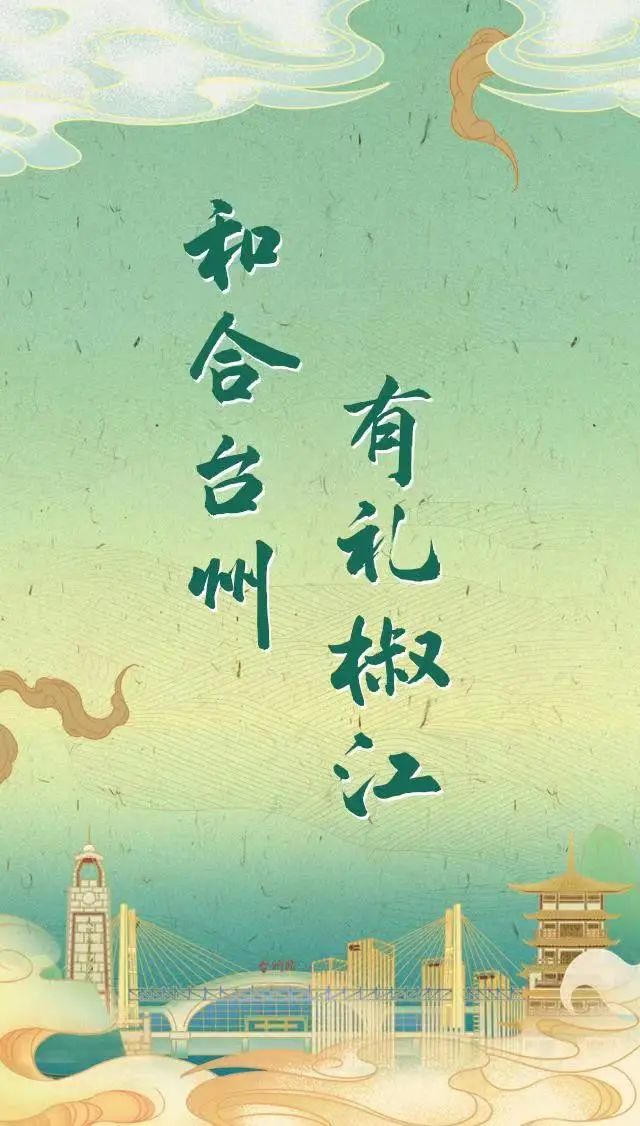 和合台州
有礼椒江
台州站